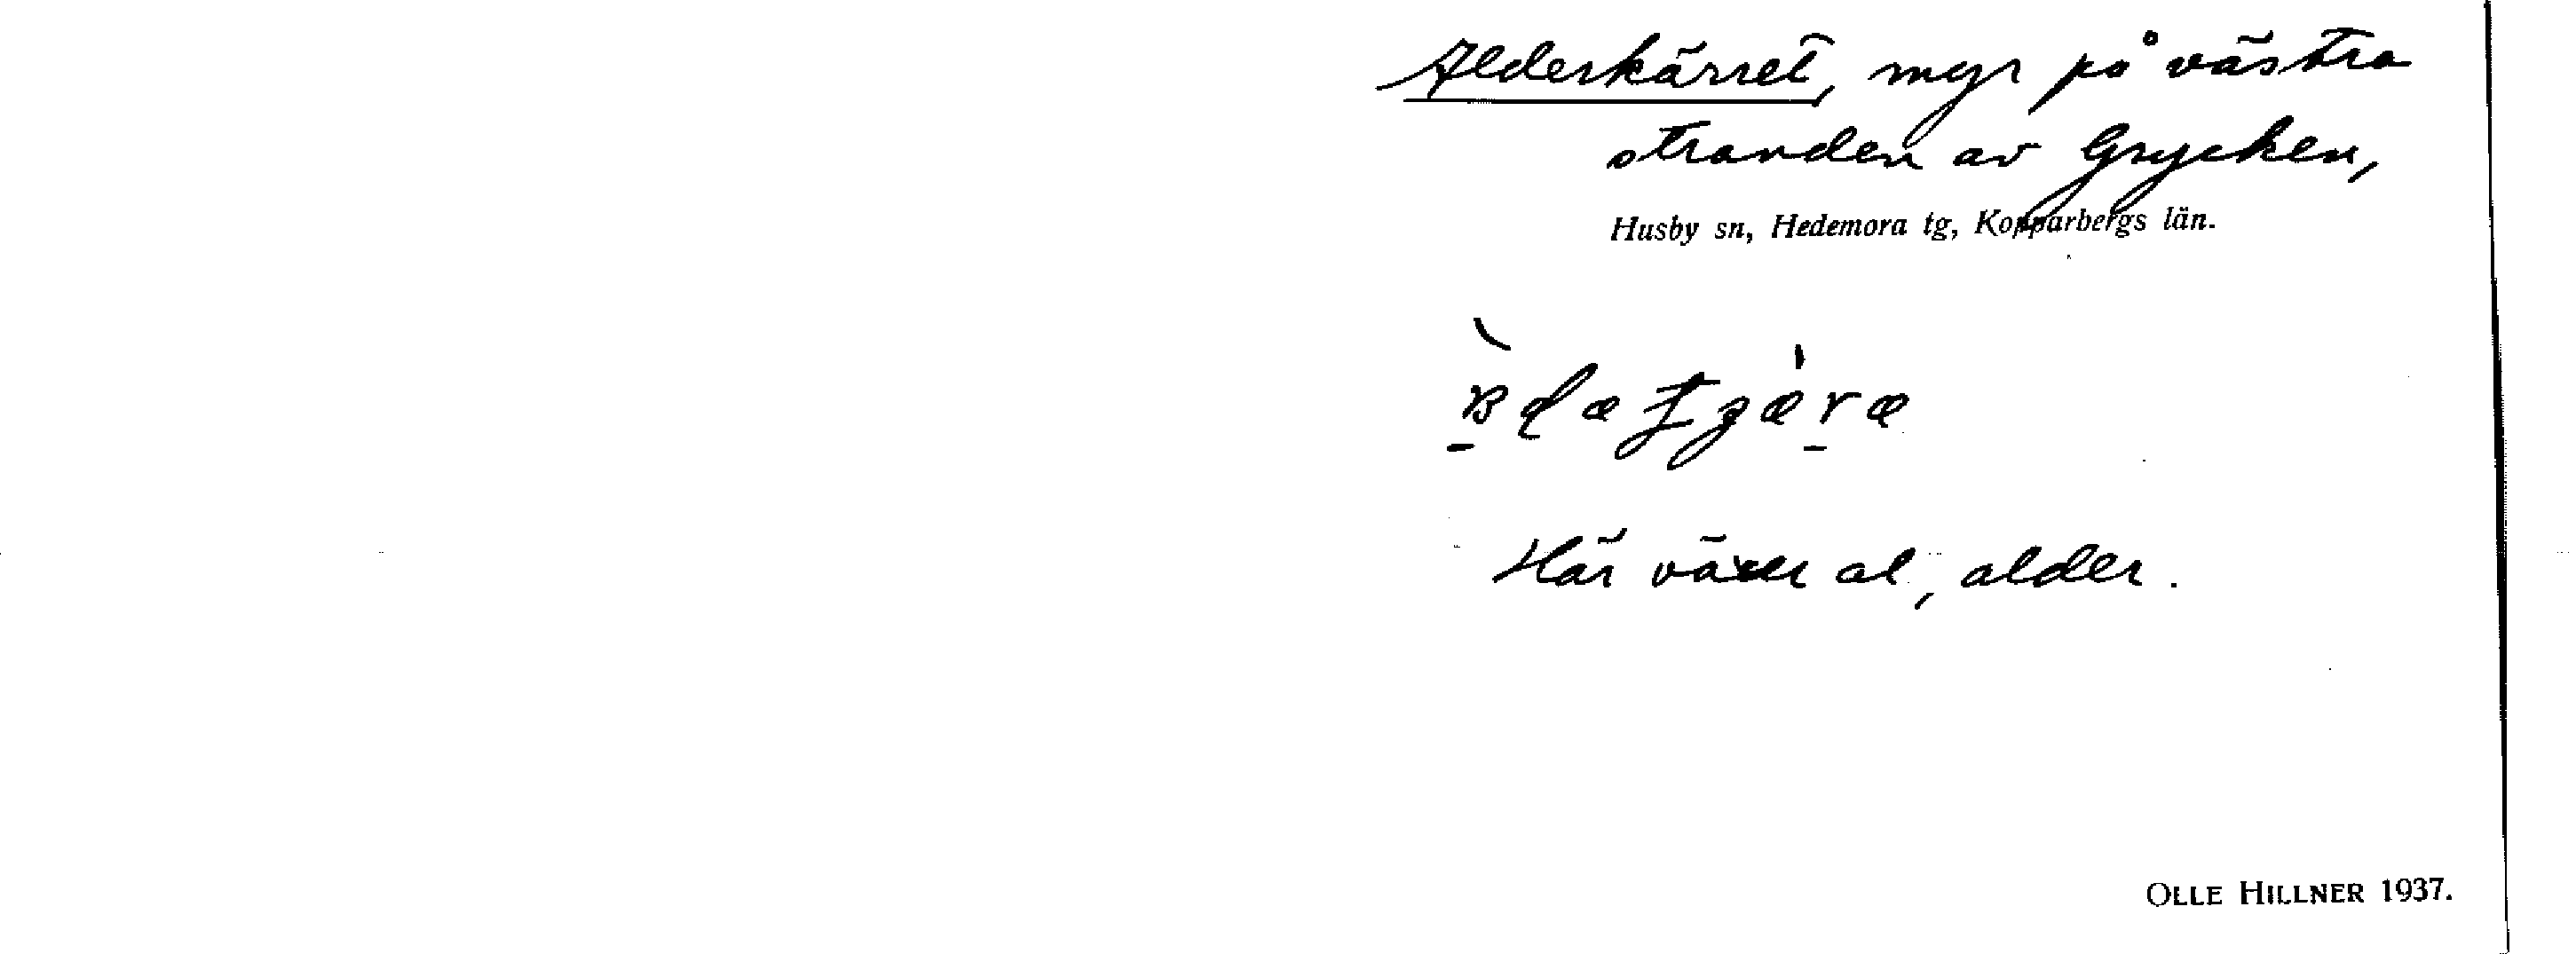 Alderkärret, myr på västra
stranden av Grycken,
Husby sn, Hedemora tg, Kopparbergs län.
Här växer al, alder.
OLLE HILLNER 1937.